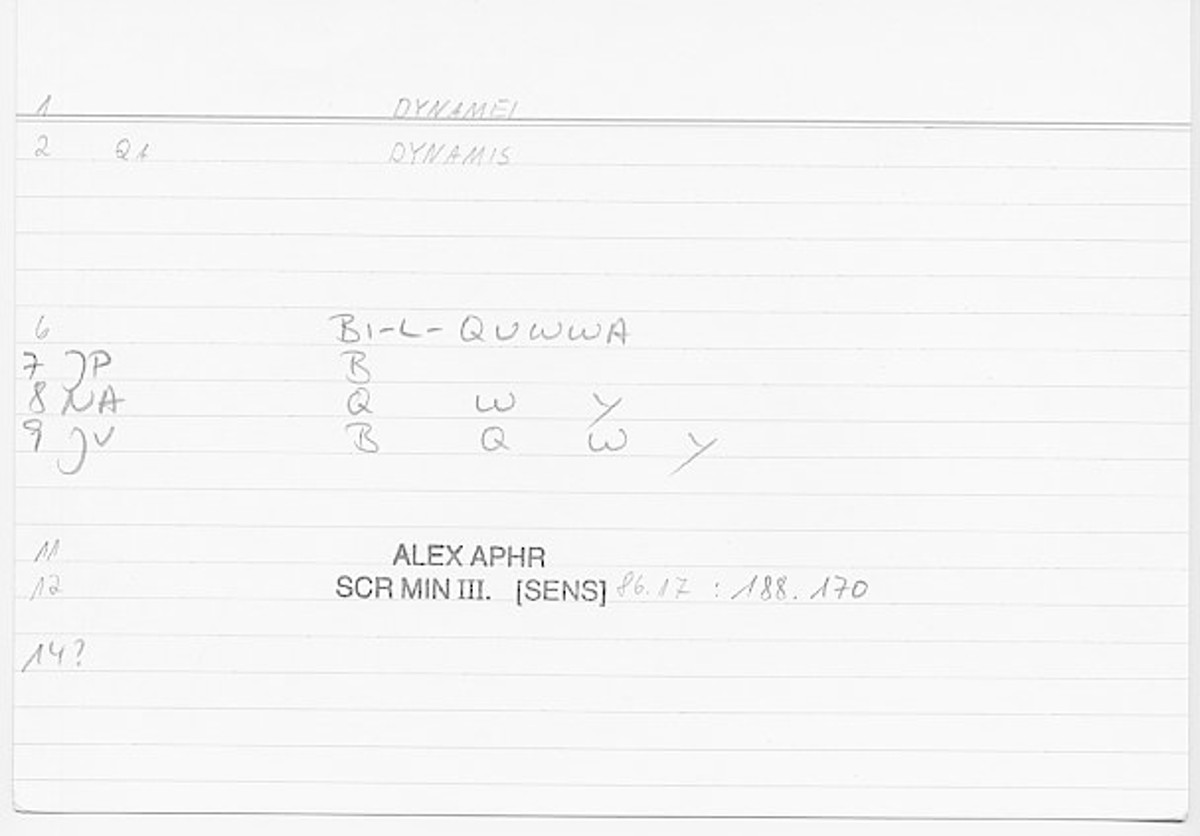 1 DYNAMEI
2 Q1 DYNAMIS
6 BI-L-QUWWA
7 JP B
8 NA Q W Y
9 JV B Q W Y
11 ALEX APHR
12 SCR MIN III. [SENS] 86.17 : 188.170
14?